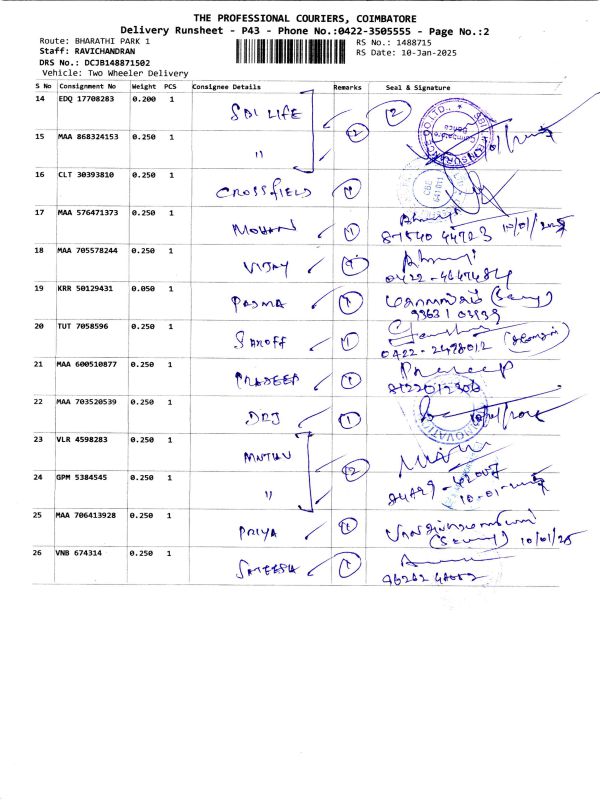 THE PROFESSIONAL COURIERS, COIMBATORE
Delivery Runsheet - P43 - Phone No.:0422-3505555 - Page No.:2
Route: BHARATHI PARK 1
RS No.: 1488715
Staff: RAVICHANDRAN
RS Date: 10-Jan-2025
DRS No.: DCJB148871502
Vehicle: Two Wheeler Delivery
S No Consignment No Weight PCS Consignee Details Remarks Seal & Signature
14 EDQ 17708283 0.200 1 SBI LIFE 2
15 MAA 868324153 0.250 1 " 2
16 CLT 30393810 0.250 1 CROSSFIELD 1
17 MAA 576471373 0.250 1 MOHAN 1 10/01/2025
18 MAA 705578244 0.250 1 VIJAY 1
19 KRR 50129431 0.050 1 PADMA 1
20 TUT 7058596 0.250 1 SAROFF 1
0422-2498012
21 MAA 600510877 0.250 1 PRADEEP 1 Pradeep
22 MAA 703520539 0.250 1 DRJ 1
23 VLR 4598283 0.250 1
24 GPM 5384545 0.250 1 " 2
10-01-2025
25 MAA 706413928 0.250 1 PRIYA 1
10/01/25
26 VNB 674314 0.250 1 SATEESH 1